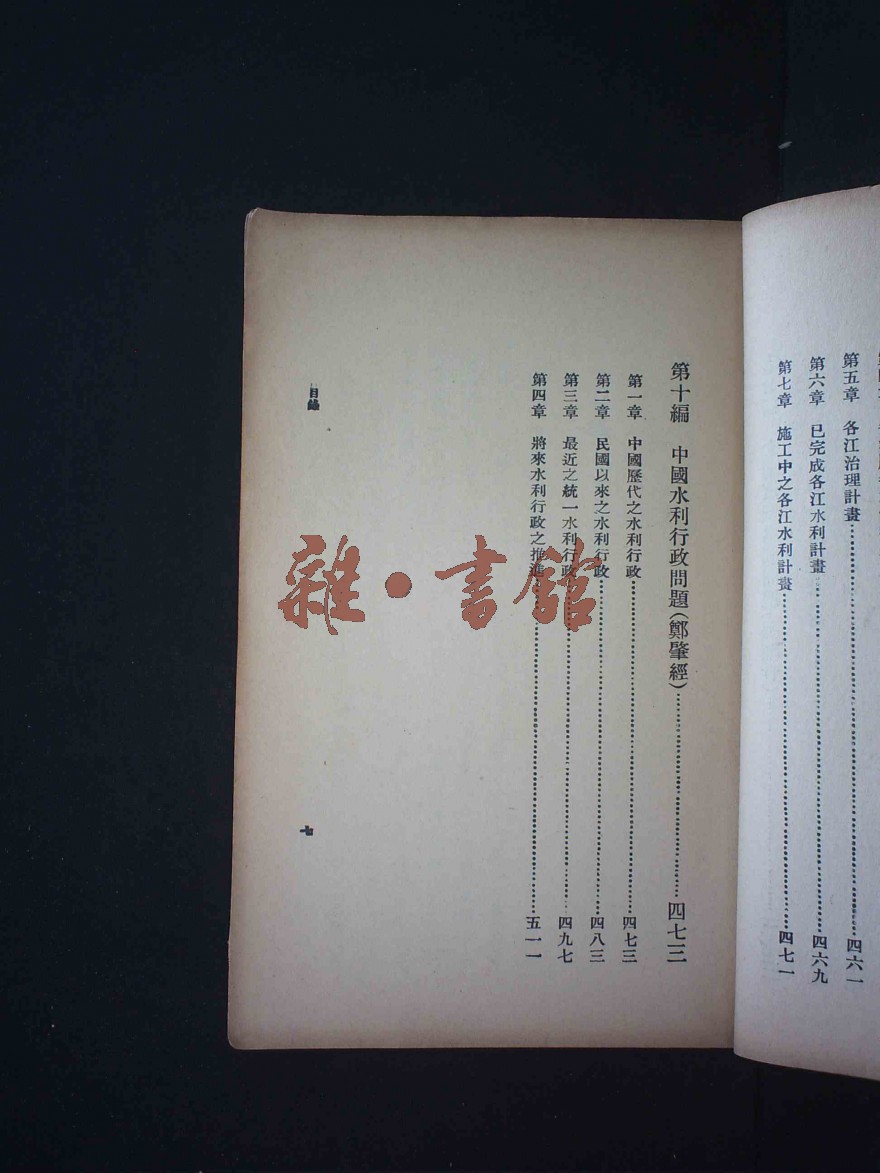 第五章 各江治理計畫……四六一
第六章 已完成各江水利計畫……四六九
第七章 施工中之各江水利計畫……四七一
第十編 中國水利行政問題(鄭肇經)……四七三
第一章 中國歷代之水利行政……四七三
第二章 民國以來之水利行政……四八三
第三章 最近之統一水利行政……四九七
第四章 將來水利行政之推進……五一一
目錄
七
雜·書館